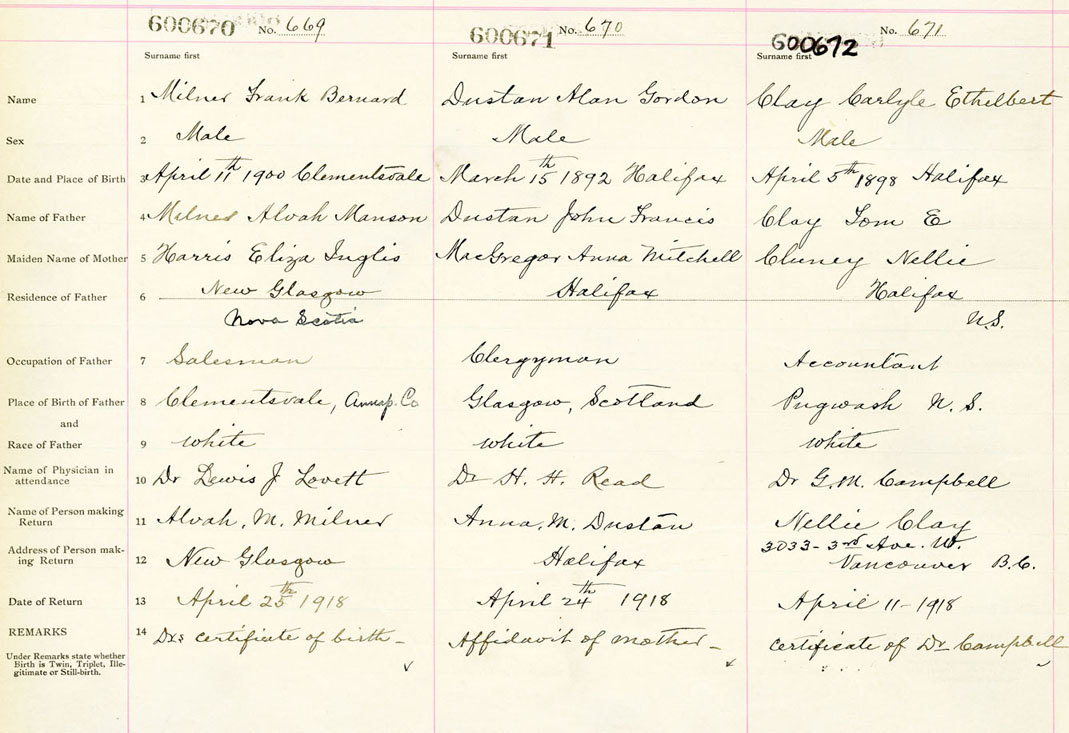 600670 No. 669 600671 No. 670 600672 No. 671
Surname first Surname first Surname first
Name 1 Milner Frank Bernard Dustan Alan Gordon Clay Carlyle Ethelbert
Sex 2 Male Male Male
Date and Place of Birth 3 April 11th 1900 Clementsvale March 15th 1892 Halifax April 5th 1898 Halifax
Name of Father 4 Milner Alvah Manson Dustan John Francis Clay Tom E
Maiden Name of Mother 5 Harris Eliza Inglis MacGregor Anna Mitchell Cluney Nellie
Residence of Father 6 New Glasgow Halifax Halifax
Nova Scotia N.S.
Occupation of Father 7 Salesman Clergyman Accountant
Place of Birth of Father 8 Clementsvale, Annap. Co Glasgow, Scotland Pugwash N. S.
and
Race of Father 9 white white white
Name of Physician in
attendance 10 Dr Lewis J Lovett Dr H. H. Read Dr G. M. Campbell
Name of Person making
Return 11 Alvah. M. Milner Anna. M. Dustan Nellie Clay
3033 - 3rd Ave. W.
Address of Person mak-
ing Return 12 New Glasgow Halifax Vancouver B.C.
Date of Return 13 April 25th 1918 April 24th 1918 April 11 - 1918
REMARKS 14 Drs certificate of birth - Affidavit of mother - certificate of Dr Campbell
Under Remarks state whether
Birth is Twin, Triplet, Ille-
gitimate or Still-birth.